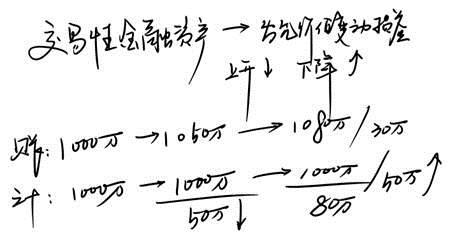 交易性金融资产 → 公允价值变动损益
上升 ↓ 下降 ↑
账: 1000万 → 1050万 → 1080万 / 30万
计: 1000万 → 1000万 → 1000万 / 50万 ↑
50万 ↓ 80万